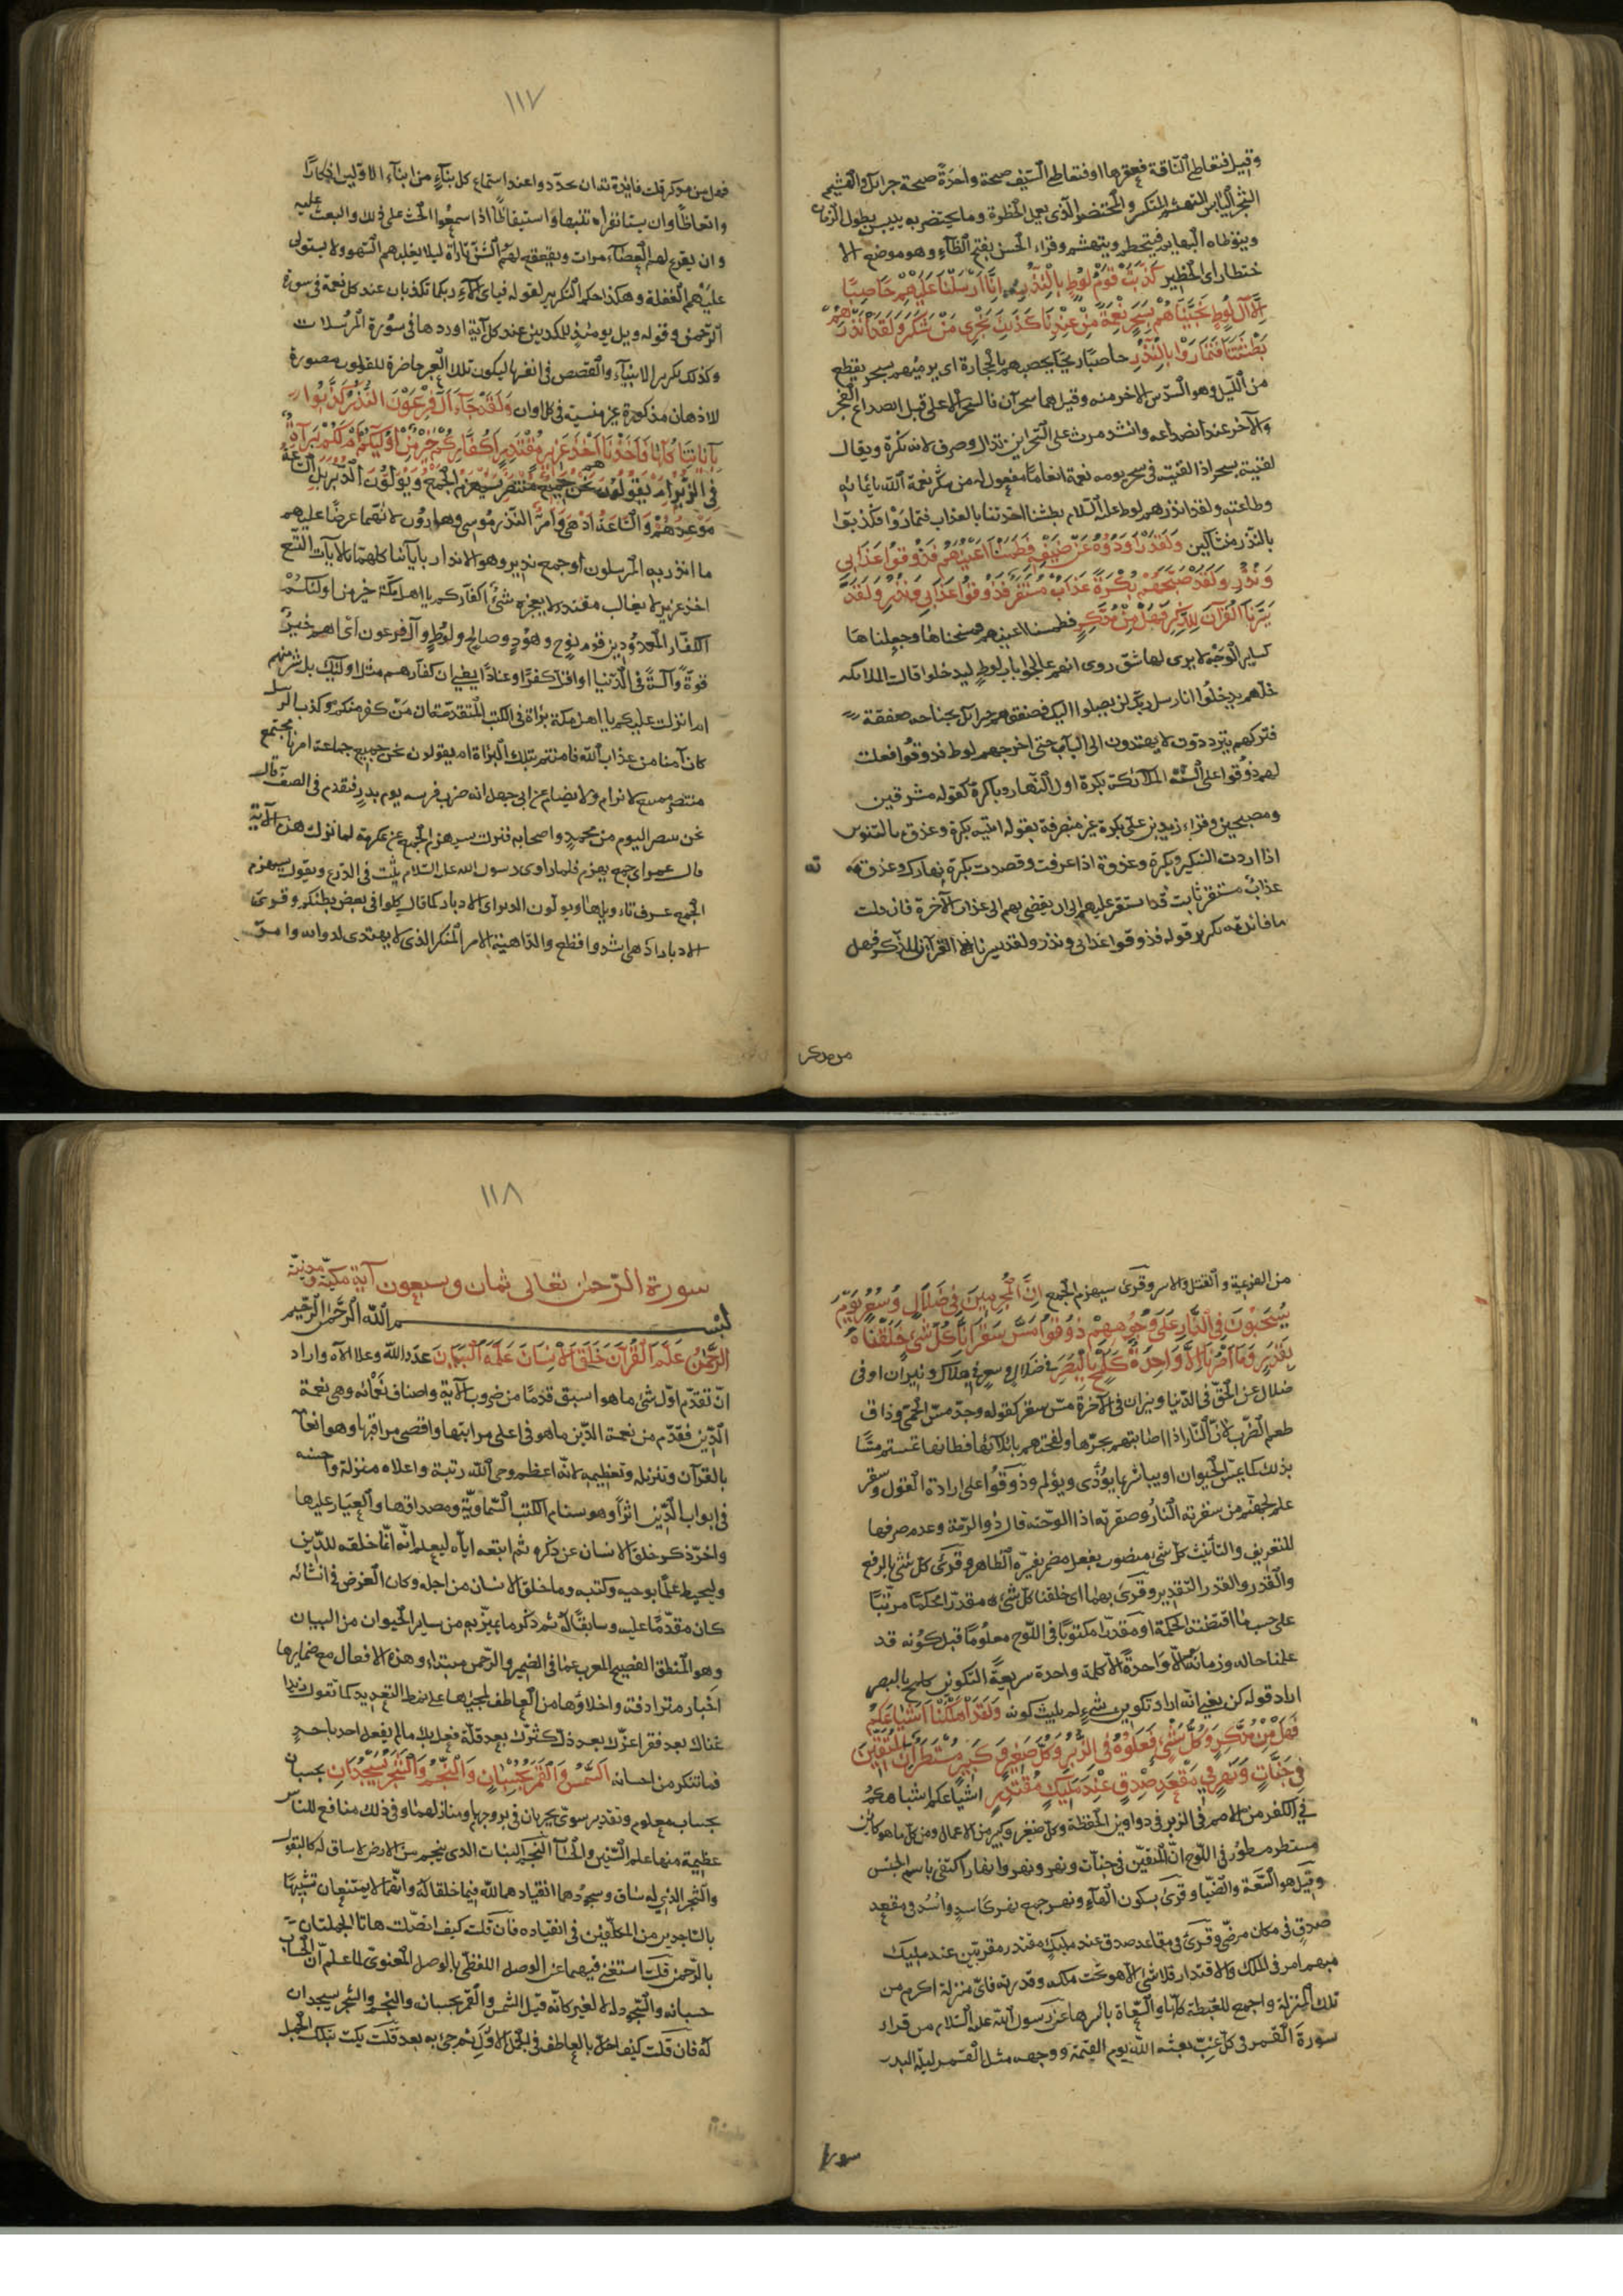 وقيل فتعاطى الناقة فعقرها او فتعاطى السيف صيحة واحدة صيحة جبرائيل والهشيم
الشجر اليابس المتهشم المتكسر والمحتضر الذى يعمل الحظيرة وما يحتضر به ييبس بطول الزمان
ويتوطاه البهايم فيتحطم ويتهشم وقراء الحسن بفتح الظآء وهو موضع الا
حتظار اى الحظير كَذَّبَتْ قَوْمُ لُوْطٍ بِالْنُّذُرِ اِنَّا اَرْسَلْنَا عَلَيْهِمْ حَاصِبًا
اِلَّا آلَ لُوْطٍ نَجَّيْنَاهُمْ بِسَحَرٍ نِعْمَةً مِنْ عِنْدِنَا كَذٰلِكَ نَجْزِى مَنْ شَكَرَ وَلَقَدْ اَنْذَرَهُمْ
بَطْشَتَنَا فَتَمَارَوْا بِالنُّذُرِ حاصبا ريحا يحصبهم بالحجارة اى يرميهم بسحر بقطع
من الليل وهو السدس الاخر منه وقيل هما سحران فالسحر الاعلى قبل انصداع الفجر
والآخر عند انصداعه وانشد مرت على السحرين تذال وصرف لانه نكرة ويقال
لقيته بسحر اذا لقيته فى سحر يومه نعمة انعاما مفعول له من شكر نعمة الله بايمانه
وطاعته ولقد انذرهم لوط عليه السلام بطشتنا اخذتنا بالعذاب فتماروا فكذبوا
بالنذر متشاكين وَلَقَدْ رَاوَدُوْهُ عَنْ ضَيْفِهِ فَطَمَسْنَا اَعْيُنَهُمْ فَذُوْقُوْا عَذَابِى
وَنُذُرِ وَلَقَدْ صَبَّحَهُمْ بُكْرَةً عَذَابٌ مُسْتَقِرٌ فَذُوْقُوْا عَذَابِى وَنُذُرِ وَلَقَدْ
يَسَّرْنَا الْقُرْآنَ لِلذِّكْرِ فَهَلْ مِنْ مُدَّكِرٍ فطمسنا اعينهم فمسخناها وجعلناها
كساير الوجه لا يرى لها شق روى انهم عالجوا باب لوط ليدخلوا قالت الملائكه
خلهم يدخلوا انا رسل ربك لن يصلوا اليك فصفقهم جبرائيل بجناحه صفقة
فتركهم يترددون لا يهتدون الى الباب حتى اخرجهم لوط فذوقوا فقلت
لهم ذوقوا على السنة الملائكة بكرة اول النهار وباكرة كقوله مشرقين
ومصبحين وقراء زيد بن على بكرة غير منصرفة بقوله اتيته بكرة وغدوة بالتنوين
اذا اردت التنكير وبكرة وغدوة اذا عرفت وقصدت بكرة نهارك وغدوته
عذاب مستقر ثابت قد استقر عليهم الى ان يفضى بهم الى عذاب الآخرة فان قلت
ما فائدة تكرير قوله فذوقوا عذابى ونذر ولقد يسرنا القرآن للذكر فهل
من مدكر
١١٧
فهل من مدكر قلت فايدة ان يجددوا عند استماع كل نبآء من انبآء الاولين اذكارا
واتعاظا وان يستانفوا تنبها واستيقاظا اذا سمعوا الحث على ذلك والبعث عليه
وان يقرع لهم العصا مرات ويقعقع لهم الشن تارة ليلا يغلبهم السهو ولا يستولى
عليهم الغفلة وهكذا حكم التكرير لقوله فباى آلآء ربكما تكذبان عند كل نعمة فى سورة
الرحمن وقوله ويل يومئذ للمكذبين عند كل آية اوردها فى سورة المرسلات
وكذلك تكرير الانبيآء والقصص فى انفسها ليكون تلك العبر حاضرة للقلوب مصورة
للاذهان مذكورة غير منسية فى كل اوان وَلَقَدْ جَآءَ آلَ فِرْعَوْنَ النُّذُرُ كَذَّبُوْا
بِآيَاتِنَا كُلِّهَا فَاَخَذْنَاهُمْ اَخْذَ عَزِيْزٍ مُقْتَدِرٍ اَكُفَّارُكُمْ خَيْرٌ مِنْ اُولٰئِكُمْ اَمْ لَكُمْ بَرَآءَةٌ
فِى الزُّبُرِ اَمْ يَقُوْلُوْنَ نَحْنُ جَمِيْعٌ مُنْتَصِرٌ سَيُهْزَمُ الْجَمْعُ وَيُوَلُّوْنَ الدُّبُرَ بَلِ السَّاعَةُ
مَوْعِدُهُمْ وَالسَّاعَةُ اَدْهٰى وَاَمَرُّ النذر موسى وهارون لانهما عرضا عليهم
ما انذر به المرسلون او جمع نذير وهو الانذار بآياتنا كلها بالآيات التسع
اخذ عزيز لا يغالب مقتدر لا يعجزه شئ اكفاركم يا اهل مكة خير من اولئكم
الكفار المعدودين قوم نوح وهود وصالح ولوط وآل فرعون اى اهم خير
قوة وآلة فى الدنيا او اقل كفرا وعنادا يعنى ان كفاركم مثل اولئك بل شر منهم
ام انزلت عليكم يا اهل مكة براة فى الكتب المتقدمة ان من كفر منكم وكذب الرسل
كان آمنا من عذاب الله فامنتم بتلك البراة ام يقولون نحن جميع جماعة امرنا مجتمع
منتصر ممتنع لا نرام ولا نضام عن ابى جهل انه ضرب فرسه يوم بدر فتقدم فى الصف قال
نحن ننتصر اليوم من محمد واصحابه فنزلت سيهزم الجمع عن عكرمة لما نزلت هذه الآية
قال عمر اى جمع يهزم فلما راوى رسول الله عليه السلام يثب فى الدرع ويقول سيهزم
الجمع عرف تاويلها ويولون الدبر اى الادبار كما قال كلوا فى بعض بطنكم وقرئ
الادبار ادهى اشد وافظع والداهية الامر المنكر الذى لا يهتدى لدوائه وامر
من الهزيمة والقتل والاسر وقرئ سيهزم الجمع اِنَّ الْمُجْرِمِيْنَ فِى ضَلَالٍ وَسُعُرٍ يَوْمَ
يُسْحَبُوْنَ فِى النَّارِ عَلٰى وُجُوْهِهِمْ ذُوْقُوْا مَسَّ سَقَرَ اِنَّا كُلَّ شَئٍ خَلَقْنَاهُ
بِقَدَرٍ وَمَا اَمْرُنَا اِلَّا وَاحِدَةٌ كَلَمْحٍ بِالْبَصَرِ فى ضلال وسعر فى هلاك ونيران او فى
ضلال عن الحق فى الدنيا ونيران فى الآخرة مس سقر كقوله وجد مس الحمى وذاق
طعم الضرب لان النار اذا اصابتهم بحرها ولفحتهم بايلامها فكانها تمسهم مسا
بذلك كما يمس الحيوان او يباشر بما يؤذى ويؤلم وذوقوا على ارادة القول وسقر
علم لجهنم من سقرته النار وصقرته اذا الوحته قال ذو الرمة وعدم صرفها
للتعريف والتأنيث كل شئ منصوب بفعل مضمر يفسره الظاهر وقرئ كل شئ بالرفع
والقدر والقدر التقدير وقرئ بهما اى خلقنا كل شئ مقدرا محكما مرتبا
على حسب ما اقتضته الحكمة او مقدرا مكتوبا فى اللوح معلوما قبل كونه قد
علمنا حاله وزمانه الا واحدة الا كلمة واحدة سريعة التكوين كلمح بالبصر
اراد قوله كن يعنى انه اراد تكوين شئ لم يلبث كونه وَلَقَدْ اَهْلَكْنَا اَشْيَاعَكُمْ
فَهَلْ مِنْ مُدَّكِرٍ وَكُلُّ شَئٍ فَعَلُوْهُ فِى الزُّبُرِ وَكُلُّ صَغِيْرٍ وَكَبِيْرٍ مُسْتَطَرٌ اِنَّ الْمُتَّقِيْنَ
فِى جَنَّاتٍ وَنَهَرٍ فِى مَقْعَدِ صِدْقٍ عِنْدَ مَلِيْكٍ مُقْتَدِرٍ اشياعكم اشباهكم
فى الكفر من الامم فى الزبر فى دواوين الحفظة وكل صغير وكبير من الاعمال ومن كل ما هو كائن
مستطر مسطور فى اللوح ان المتقين فى جنات ونهر ونهر وانهار اكتفى باسم الجنس
وقيل هو السعة والضيا وقرئ بسكون الهآء ونهر جمع نهر كاسد واسد فى مقعد
صدق فى مكان مرضى وقرئ فى مقاعد صدق عند مليك مقتدر مقربين عند مليك
مبهم امر فى الملك والاقتدار فلا شئ الا هو تحت ملكه وقدرته فاى منزلة اكرم من
تلك المنزلة واجمع للغبطة كلها والسعادة باسرها عن رسول الله عليه السلام من قراء
سورة القمر فى كل غب بعثه الله يوم القيمة ووجهه مثل القمر ليلة البدر
سورة
١١٨
سورة الرحمن تعالى ثمان وسبعون آية مكية ومدنية
بسم الله الرحمن الرحيم
اَلرَّحْمٰنُ عَلَّمَ الْقُرْآنَ خَلَقَ الْاِنْسَانَ عَلَّمَهُ الْبَيَانَ عدد الله وعلا الآه واراد
ان تقدم اول شئ ما هو اسبق قدما من ضروب الآئه واصناف نعمائه وهى نعمة
الدين فقدم من نعمة الدين ما هو فى اعلى مراتبها واقصى مراقيها وهو انعامه
بالقرآن وتنزيله وتعظيمه لانه اعظم وحى الله رتبة واعلاه منزلة واحسنه
فى ابواب الدين اثرا وهو سنام الكتب السماوية ومصداقها والعيار عليها
واخر ذكر خلق الانسان عن ذكره ثم اتبعه اياه ليعلم انه انما خلقه للدين
وليحيط علما بوحيه وكتبه وما خلق الانسان من اجله وكان الغرض فى انشائه
كان مقدما عليه وسابقا له ثم ذكر ما يميز به من ساير الحيوان من البيان
وهو المنطق الفصيح المعرب عما فى الضمير والرحمن مبتداء وهذه الافعال مع ضمايرها
اخبار مترادفة واخلاؤها من العاطف لمجيئها على نمط التعديد كما تقول زيد
غناك بعد فقر اعزك بعد ذل كثرك بعد قلة فعل بك ما لم يفعل احد باحد
فما تنكر من احسانه اَلشَّمْسُ وَالْقَمَرُ بِحُسْبَانٍ وَالنَّجْمُ وَالشَّجَرُ يَسْجُدَانِ بحسبان
بحساب معلوم وتقدير سوى يجريان فى بروجهما ومنازلهما وفى ذلك منافع للناس
عظيمة منها علم السنين والحساب والنجم النبات الذى ينجم من الارض لا ساق له كالبقول
والشجر الذى له ساق وسجودهما انقيادهما لله فيما خلقا له وانهما لا يمتنعان تشبيها
بالساجدين من المكلفين فى انقياده فان قلت كيف اتصلت هاتا الجملتان
بالرحمن قلت استغنى فيهما عن الوصل اللفظى بالوصل المعنوى لما علم ان الحساب
حسبانه والسجود له لا لغيره كانه قيل الشمس والقمر بحسبانه والنجم والشجر يسجدان
له فان قلت كيف اخل بالعاطف فى الجمل الاول ثم جئ به بعد قلت بكت بتلك الجمل